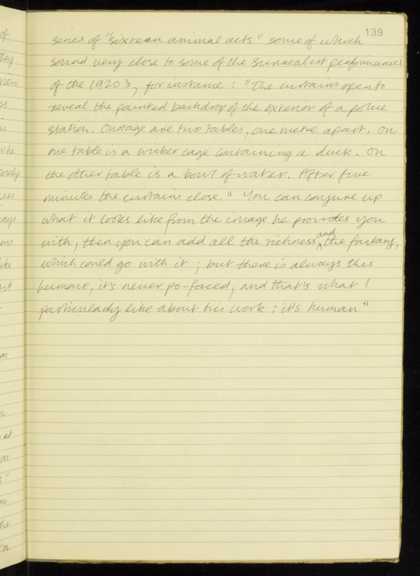 139
series of "sixteen animal acts" some of which
sound very close to some of the surrealist performances
of the 1920's, for instance: "The curtains open to
reveal the painted backdrop of the exterior of a police
station. Onstage are two tables, one metre apart. On
one table is a wicker cage containing a duck. On
the other table is a bowl of water. After five
minutes the curtains close." You can conjure up
what it looks like from the image he provides you
with, then you can add all the richness and the fantasy,
which could go with it; but there is always this
humour, it's never po-faced, and that's what I
particularly like about his work: it's human"